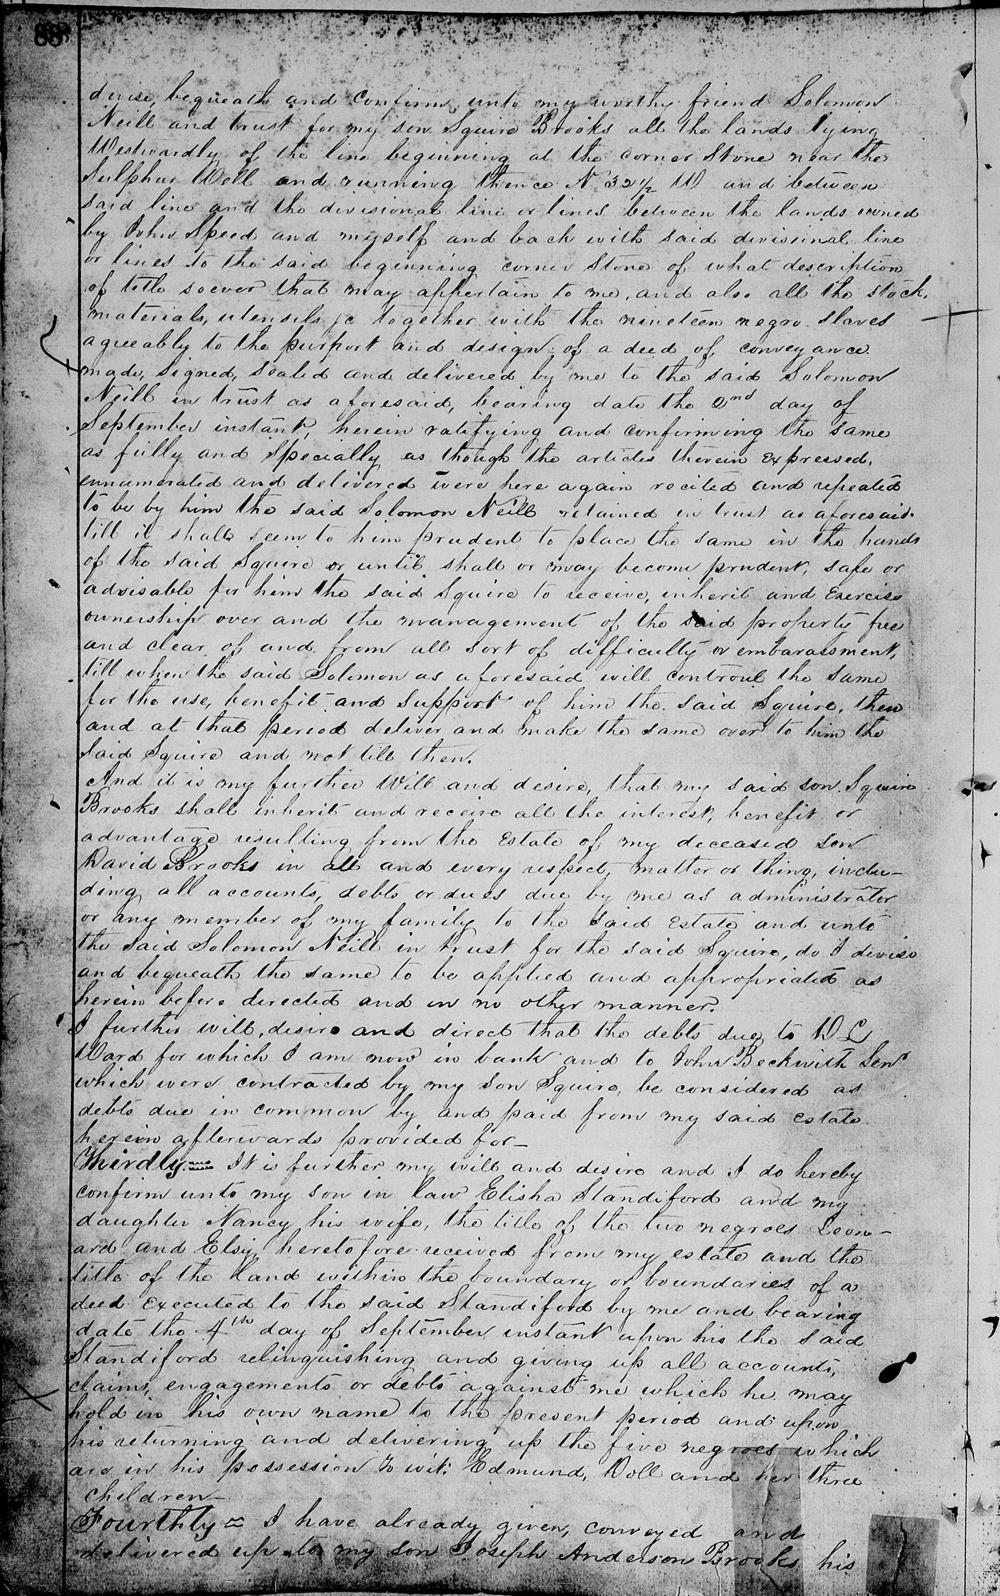 88
devise, bequeath and confirm unto my worthy friend Solomon
Neill and trust for my son Squire Brooks all the lands lying
Westwardly of the line beginning at the corner Stone near the
Sulphur Well and running thence N 32 1/2 W and between
said line and the divisional line or lines between the lands owned
by John Speed and myself and back with said divisional line
or lines to the said beginning corner Stone of what description
of title soever that may appertain to me, and also all the stock,
materials, utensils &c together with the nineteen negro slaves
agreeably to the purport and design of a deed of conveyance
made, signed, sealed and delivered by me to the said Solomon
Neill in trust as aforesaid, bearing date the 2nd day of
September instant, herein ratifying and confirming the same
as fully and Specially as though the articles therein Expressed,
ennumerated and delivered were here again recited and repeated
to be by him the said Solomon Neill retained in trust as aforesaid
till it shall seem to him prudent to place the same in the hands
of the said Squire or until shall or may become prudent, safe or
advisable for him the said Squire to receive, inherit and Exercise
ownership over and the management of the said property free
and clear of and from all sort of difficulty or embarassment,
till when the said Solomon as aforesaid will controul the same
for the use, benefit and Support of him the said Squire, then
and at that period deliver and make the same over to him the
said Squire and not till then.
And it is my further Will and desire, that my said son Squire
Brooks shall inherit and receive all the interest, benefit or
advantage resulting from the Estate of my deceased Son
David Brooks in all and every respect, matter or thing, inclu-
ding all accounts, debts or dues due by me as administrator
or any member of my family to the said Estate and unto
the said Solomon Neill in trust for the said Squire, do I devise
and bequeath the same to be applied and appropriated as
herein before directed and in no other manner.
I further will, desire and direct that the debts due to D L
Ward for which I am now in bank and to John Beckwith Senr
which were contracted by my Son Squire, be considered as
debts due in common by and paid from my said estate
herein afterwards provided for—
Thirdly— It is further my will and desire and I do hereby
confirm unto my son in law Elisha Standiford and my
daughter Nancy his wife, the title of the two negroes Leon-
ard and Elsy heretofore received from my estate and the
title of the land within the boundary or boundaries of a
deed Executed to the said Standiford by me and bearing
date the 4th day of September instant upon his the said
Standiford relinquishing and giving up all accounts,
claims, engagements or debts against me which he may
hold in his own name to the present period and upon
his returning and delivering up the five negroes which
are in his possession to wit: Edmund, Doll and her three
children—
Fourthly = I have already given, conveyed and
delivered up to my son Joseph Anderson Brooks his